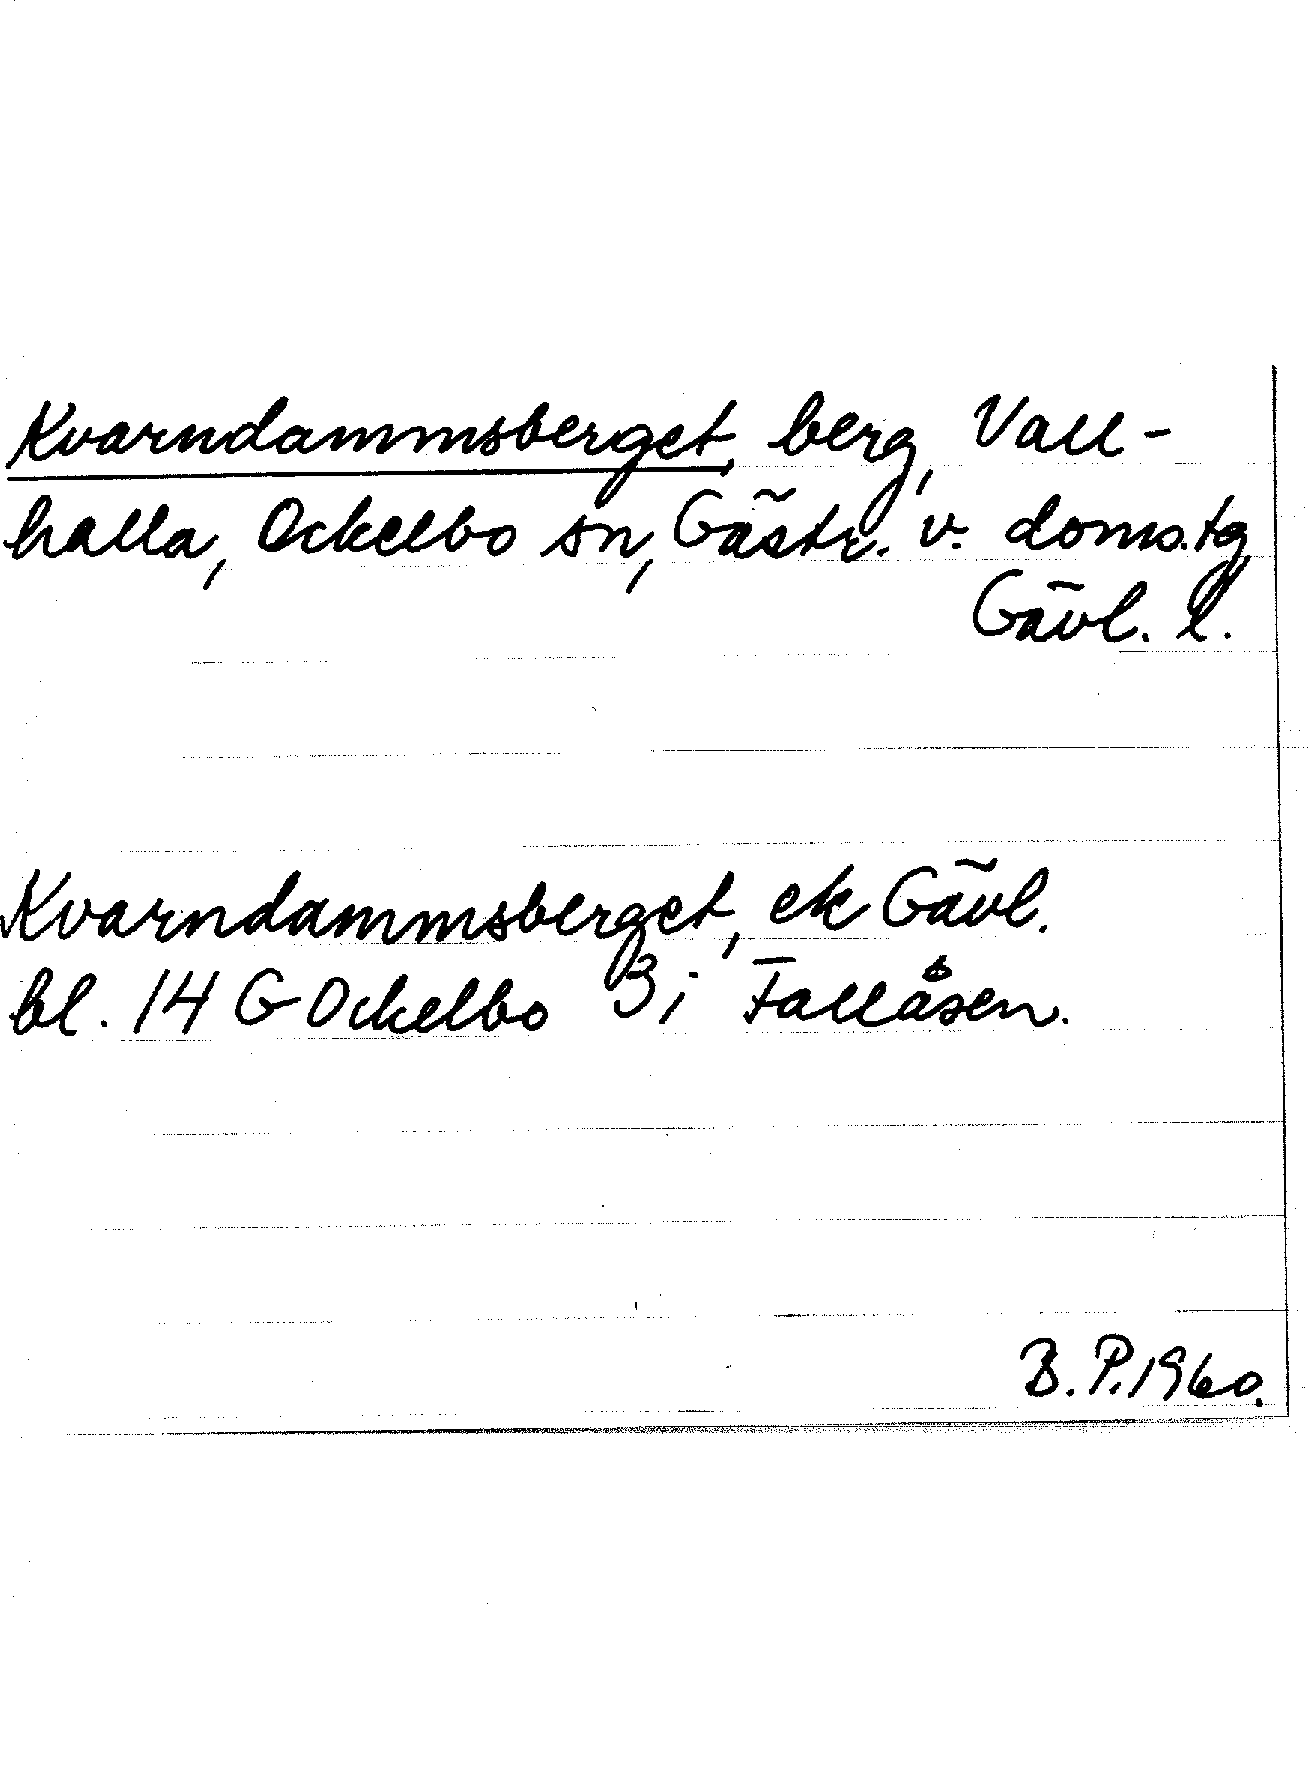 Kvarndammsberget, berg, Vall-
halla, Ockelbo sn, Gästr. v. doms.tg,
Gävl. l.
Kvarndammsberget, ek Gävl.
bl. 14 G Ockelbo 3 i Fallåsen.
B. P. 1960.